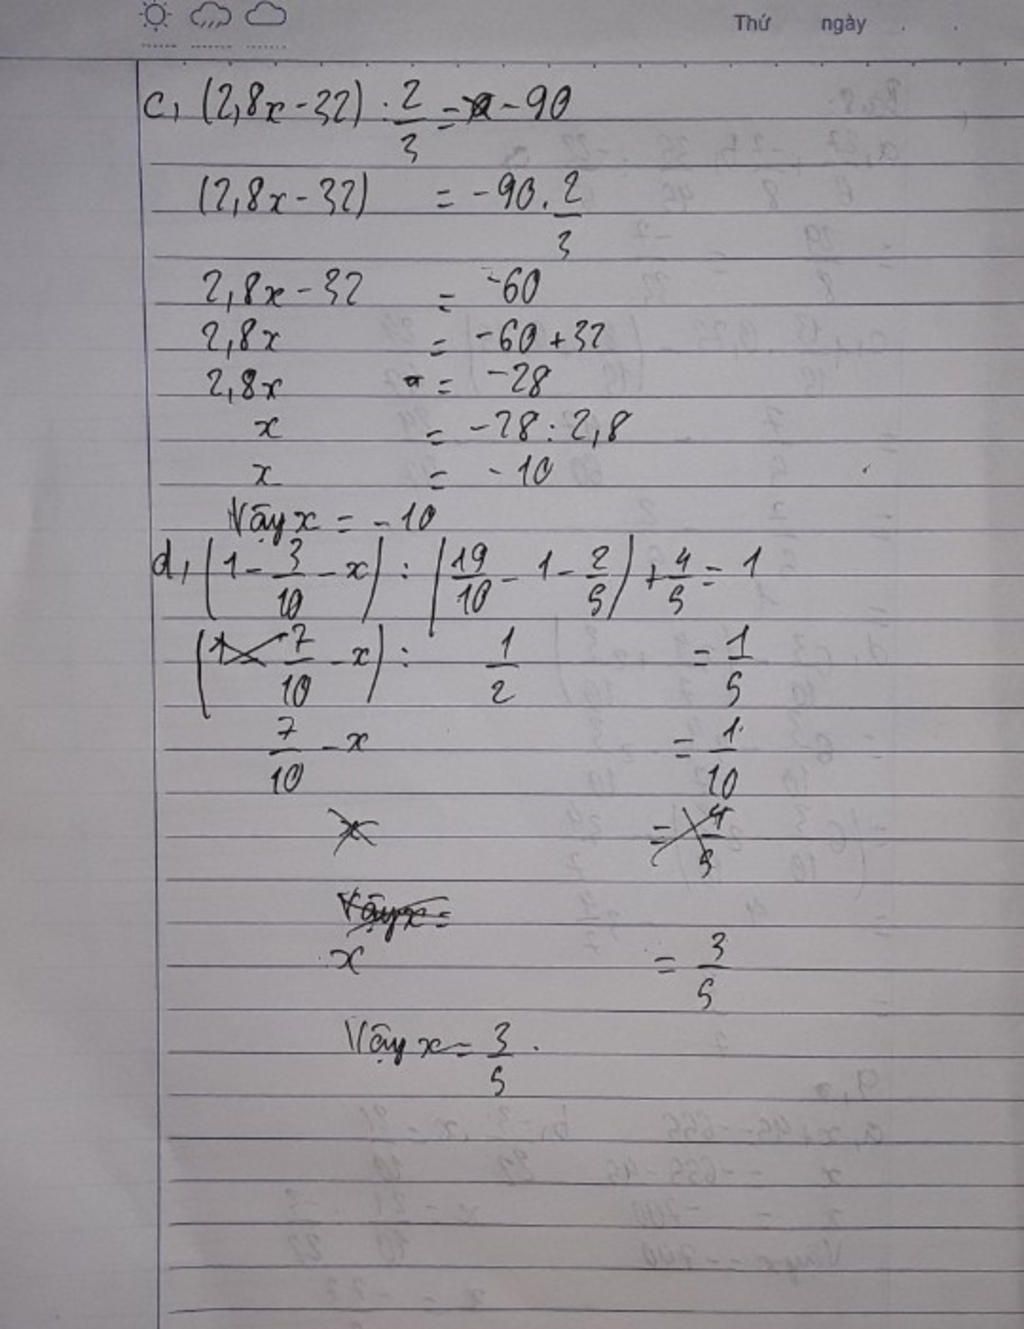 Thứ ngày
c, (2,8x - 32) : 2/3 = - 90
(2,8x - 32) = -90 . 2/3
2,8x - 32 = -60
2,8x = -60 + 32
2,8x = -28
x = -28 : 2,8
x = -10
Vậy x = -10
d, (1 - 3/10 - x) : (19/10 - 1 - 2/5) + 4/5 = 1
(7/10 - x) : 1/2 = 1/5
7/10 - x = 1/10
x = 4/5
Vậy x =
x = 3/5
Vậy x = 3/5.